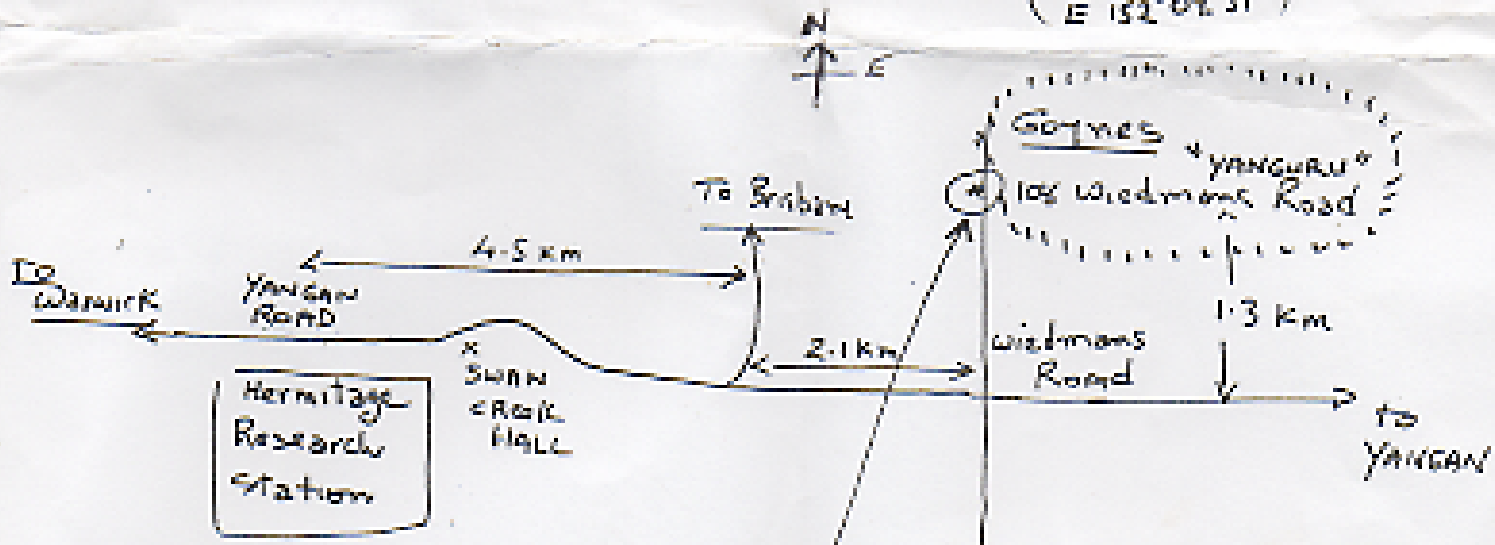 N
E
Goynes
"YANGURU"
108 Wiedmans Road
To Brisbane
4.5 km
To
Warwick
YANGAN
ROAD
1.3 km
2.1 km
wiedmans
Road
x
SWAN
CREEK
HALL
Hermitage
Research
Station
to
YANGAN